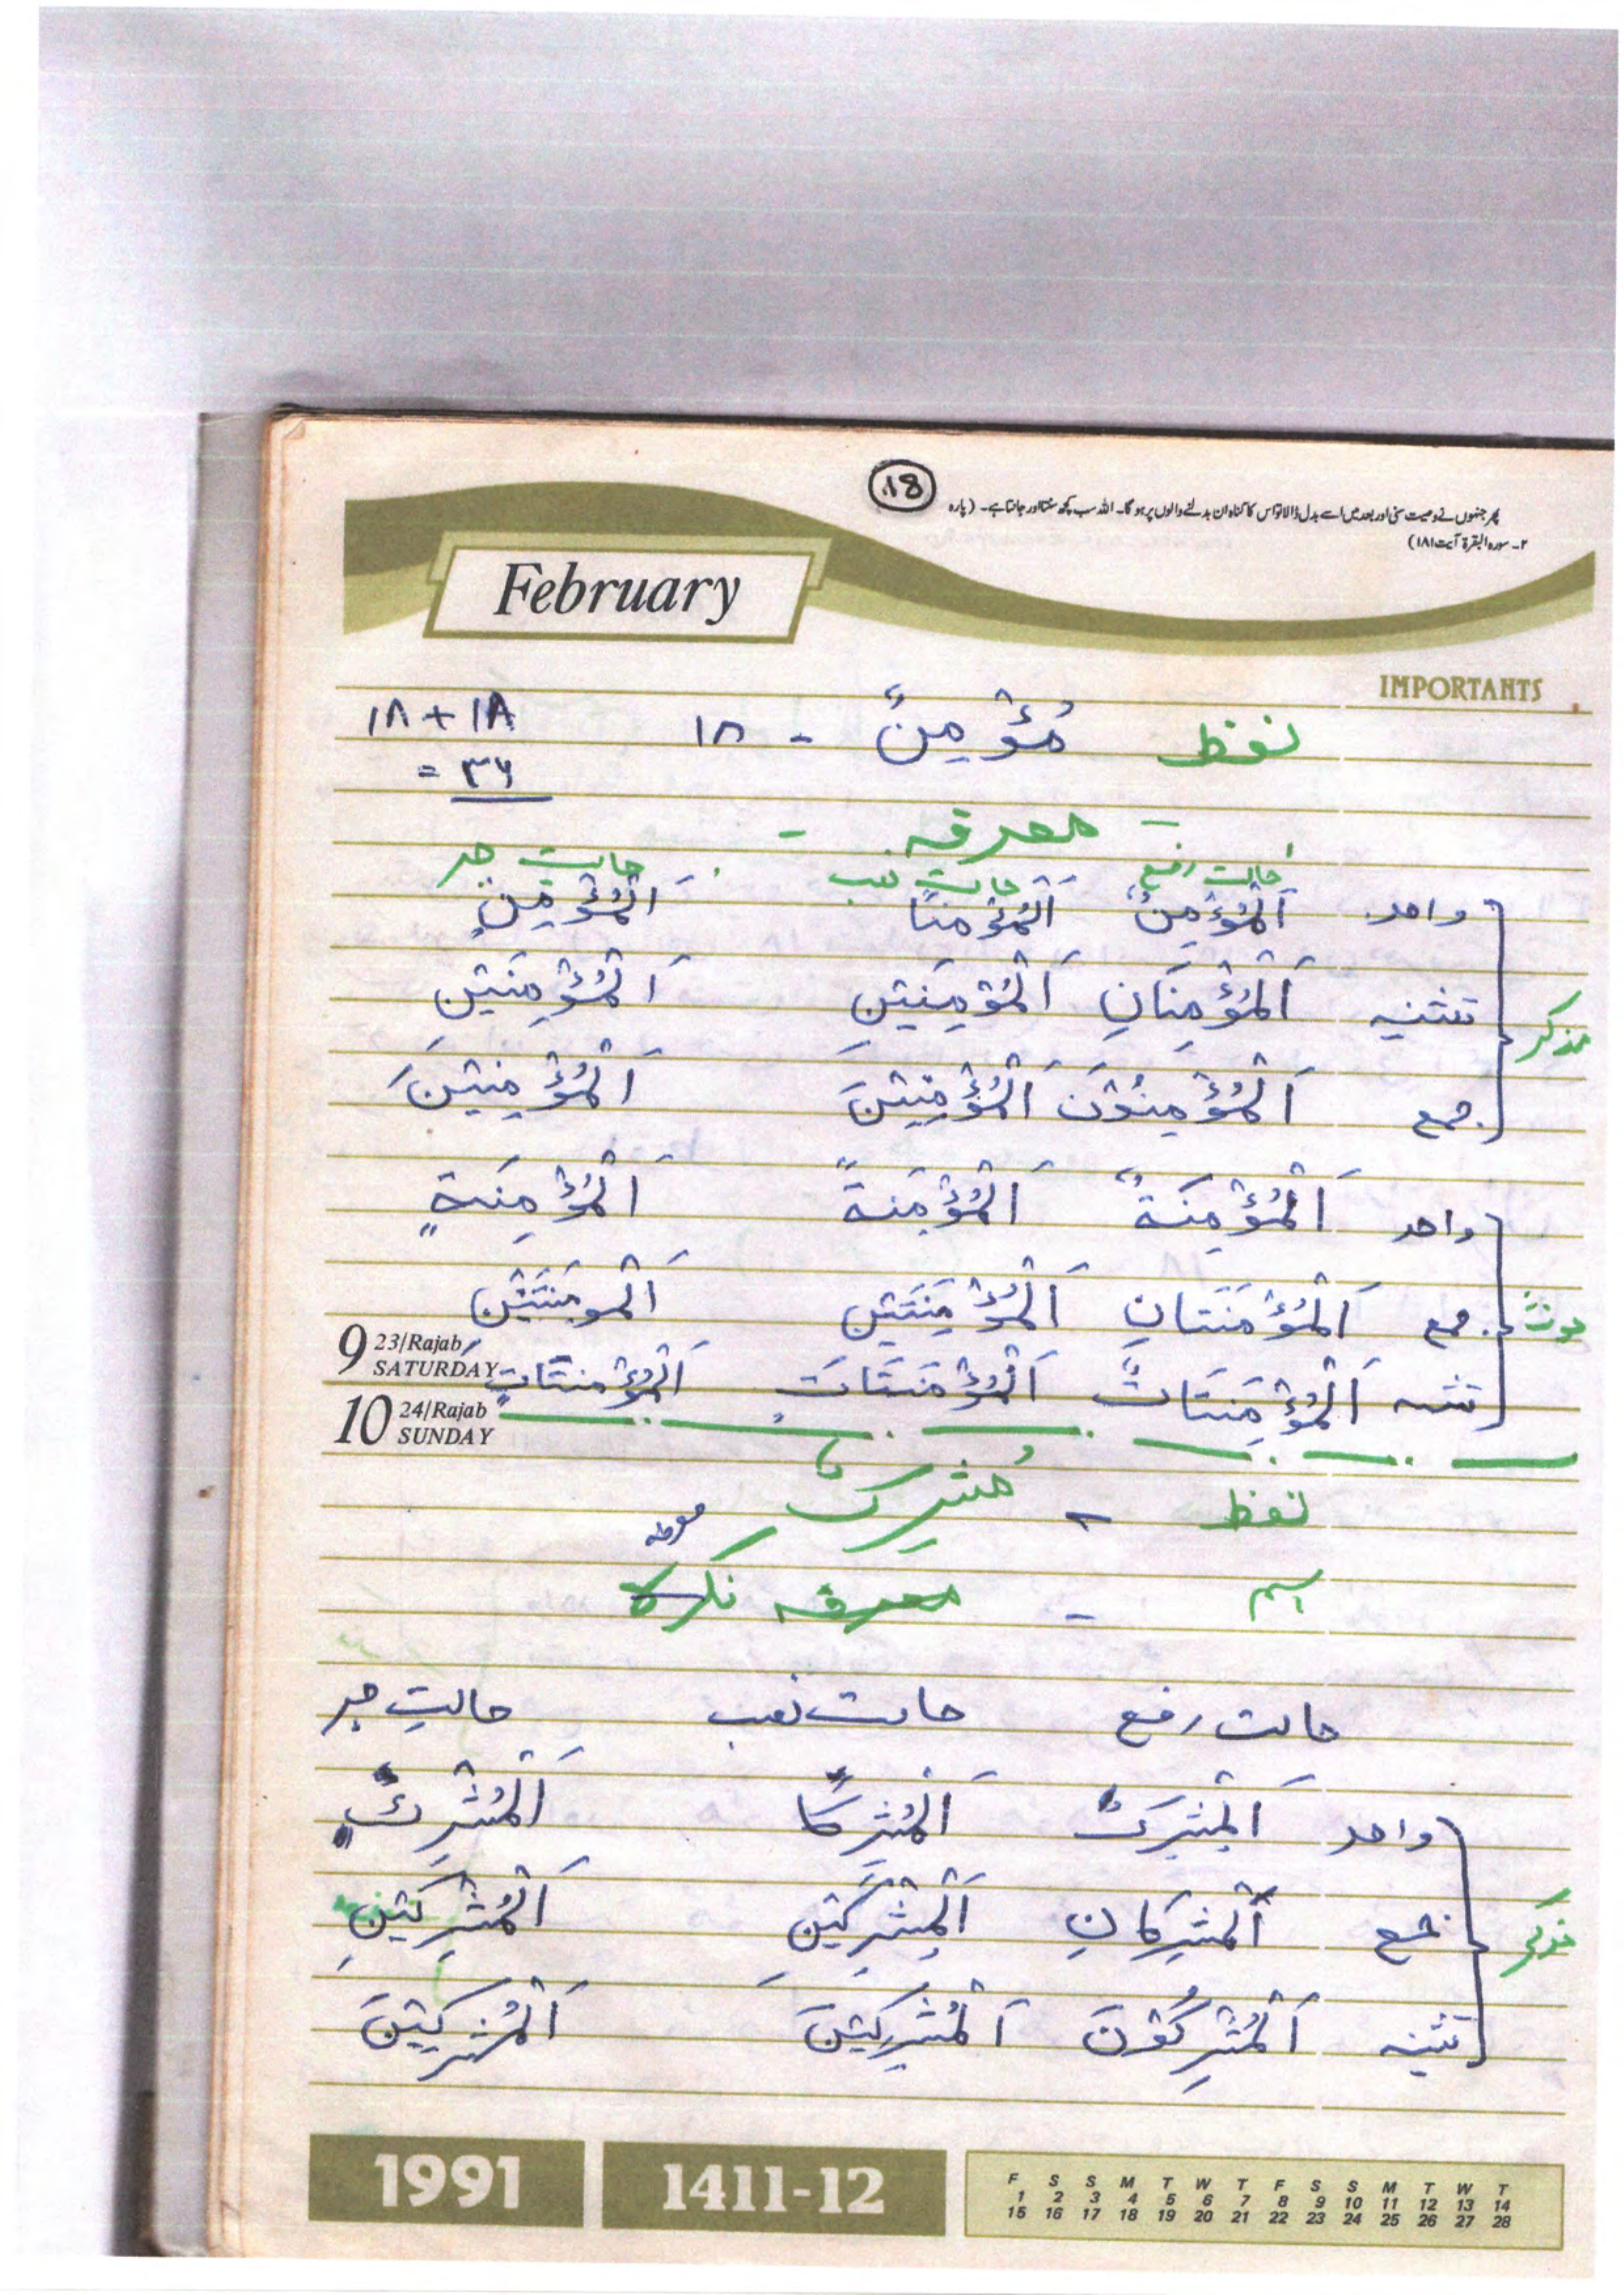 18
پھر جنہوں نے وصیت سنی اور بعد میں اسے بدل ڈالا تو اس کا گناہ ان بدلنے والوں پر ہو گا۔ اللہ سب کچھ سنتا اور جانتا ہے۔ (پارہ
۲۔ سورہ البقرۃ آیت ۱۸۱)
February
IMPORTANTS
لفظ مُؤْمِنٌ - ۱۸ ۱۸+۱۸
= ۳۶
- معرفہ -
حالت رفع حالت نصب حالتِ جر
واحد اَلْمُؤْمِنٌ اَلْمُؤْمِنًا اَلْمُؤْمِنٍ
تثنیہ اَلْمُؤْمِنَانِ اَلْمُؤْمِنَيْنِ اَلْمُؤْمِنَيْنِ
مذکر
جمع اَلْمُؤْمِنُوْنَ اَلْمُؤْمِنِيْنَ اَلْمُؤْمِنِيْنَ
واحد اَلْمُؤْمِنَةٌ اَلْمُؤْمِنَةً اَلْمُؤْمِنَةٍ
مونث جمع اَلْمُؤْمِنَتَانِ اَلْمُؤْمِنَتَيْنِ اَلْمومِنَتَيْنِ
9 23/Rajab
SATURDAY
تثنیہ اَلْمُؤْمِنَاتٌ اَلْمُؤْمِنَاتٍ اَلْمُؤْمِنَاتٍ
10 24/Rajab
SUNDAY
لفظ - مُشرکٌ
معرفہ
اسم - معرفہ نکرہ
حالت رفع حالت نصب حالتِ جر
واحد اَلْمُشْرِكٌ اَلْمُشْرِكًا اَلْمُشْرِكٍ
مذکر جمع اَلْمُشْرِكَانِ اَلْمُشْرِكَيْنِ اَلْمُشْرِكَيْنِ
تثنیہ اَلْمُشْرِكُوْنَ اَلْمُشْرِكِيْنَ اَلْمُشْرِكِيْنَ
1991 1411-12
F S S M T W T F S S M T W T
1 2 3 4 5 6 7 8 9 10 11 12 13 14
15 16 17 18 19 20 21 22 23 24 25 26 27 28